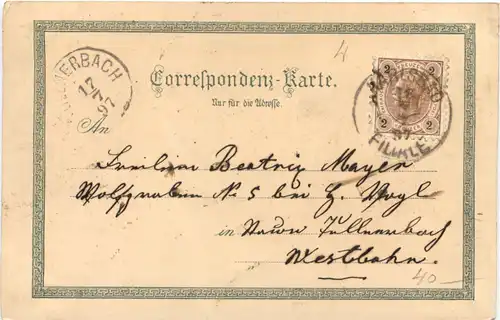 4
ERBACH
17
7
97
Correspondenz-Karte.
Nur für die Adresse.
2 2
FILIALE
An
Fräulein Beatrix Mayer
Wolfgraben No 5 bei H. Vogl
in Tullnerbach
Westbahn.
40-